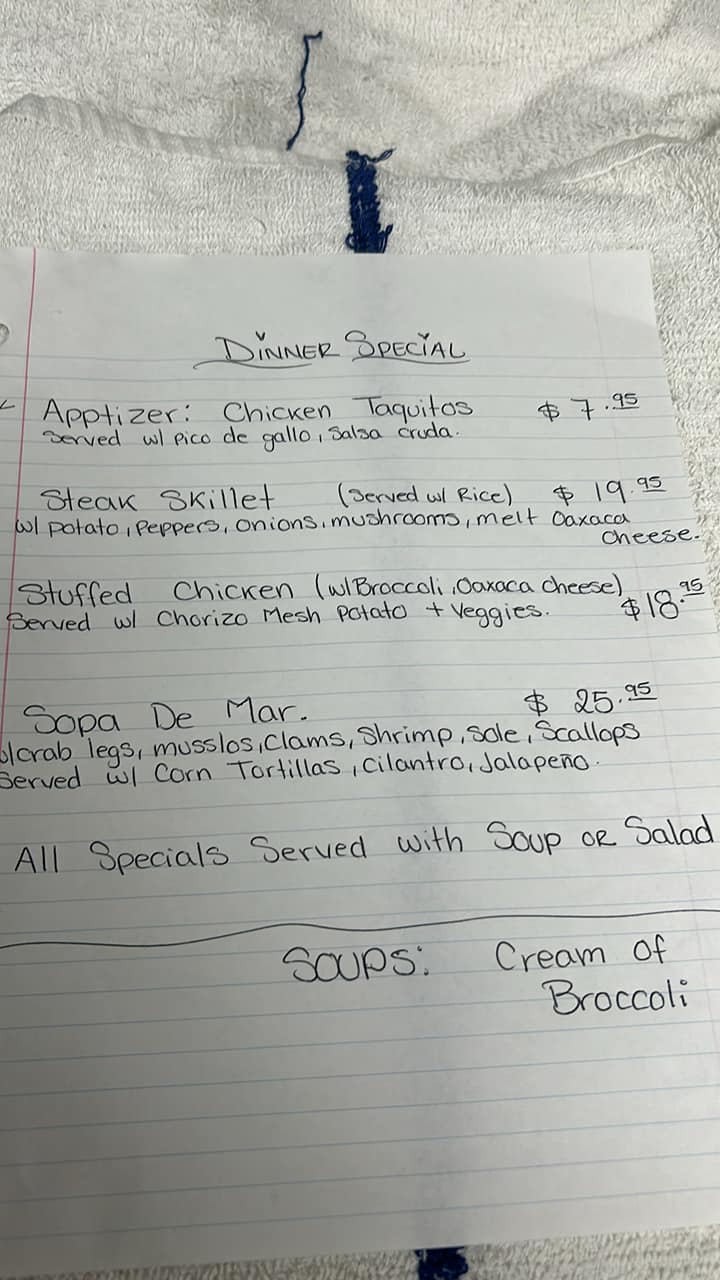 DINNER SPECIAL
Apptizer: Chicken Taquitos $7.95
Served w/ Pico de gallo, Salsa cruda.
Steak Skillet (Served w/ Rice) $19.95
w/ potato, Peppers, onions, mushrooms, melt Oaxaca
cheese.
Stuffed Chicken (w/Broccoli, Oaxaca cheese)
Served w/ Chorizo Mesh Potato + Veggies. $18.95
Sopa De Mar. $25.95
w/crab legs, musslos, Clams, Shrimp, Sole, Scallops
Served w/ Corn Tortillas, cilantro, Jalapeño.
All Specials Served with Soup OR Salad
SOUPS: Cream Of
Broccoli